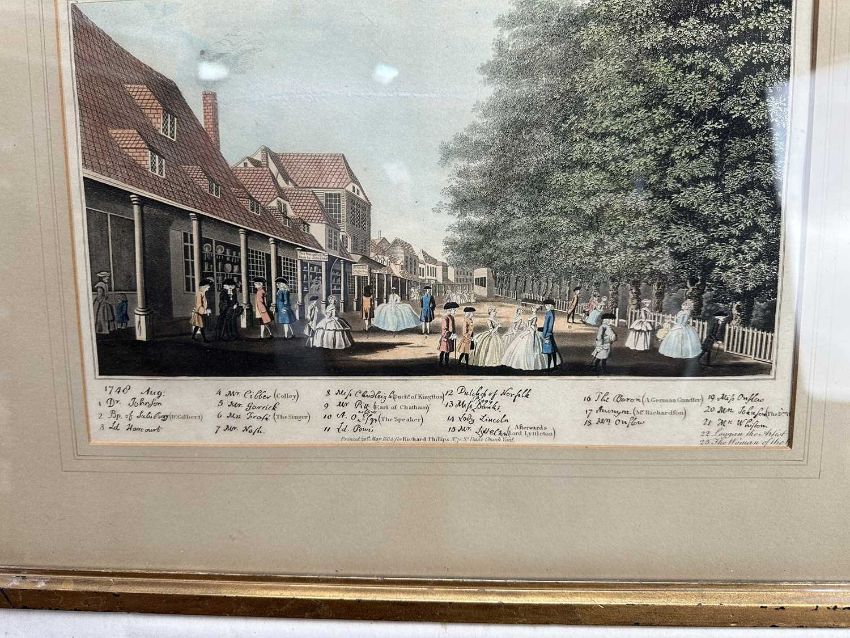 1748 Aug.
1 Dr. Johnson
2 Bp. of Salisbury (Dr. Gilbert)
3 Ld Harcourt
4 Mr. Cibber (Colley)
5 Mr. Garrick
6 Mrs Frasi (The Singer)
7 Mr. Nash.
8 Miss Chudleigh (Duch.ss of Kingston)
9 Mr Pitt (Earl of Chatham)
10 A. Onslow Esqr. (The Speaker)
11 Ld. Powis
12 Dutchess of Norfolk
13 Miss Banks
14 Lady Lincoln
15 Mr. Lyttelton (Afterwards Lord Lyttleton)
16 The Baron (A German Gamester)
17 Anonyme (Mr. Richardson)
18 Mrs Onslow
19 Miss Onslow
20 Mrs. Johnson
21 Mr. Whiston
22 Loggan the Artist
23 The Woman of the
Printed May 1804 for Richard Phillips No. 71 St. Pauls Church Yard.